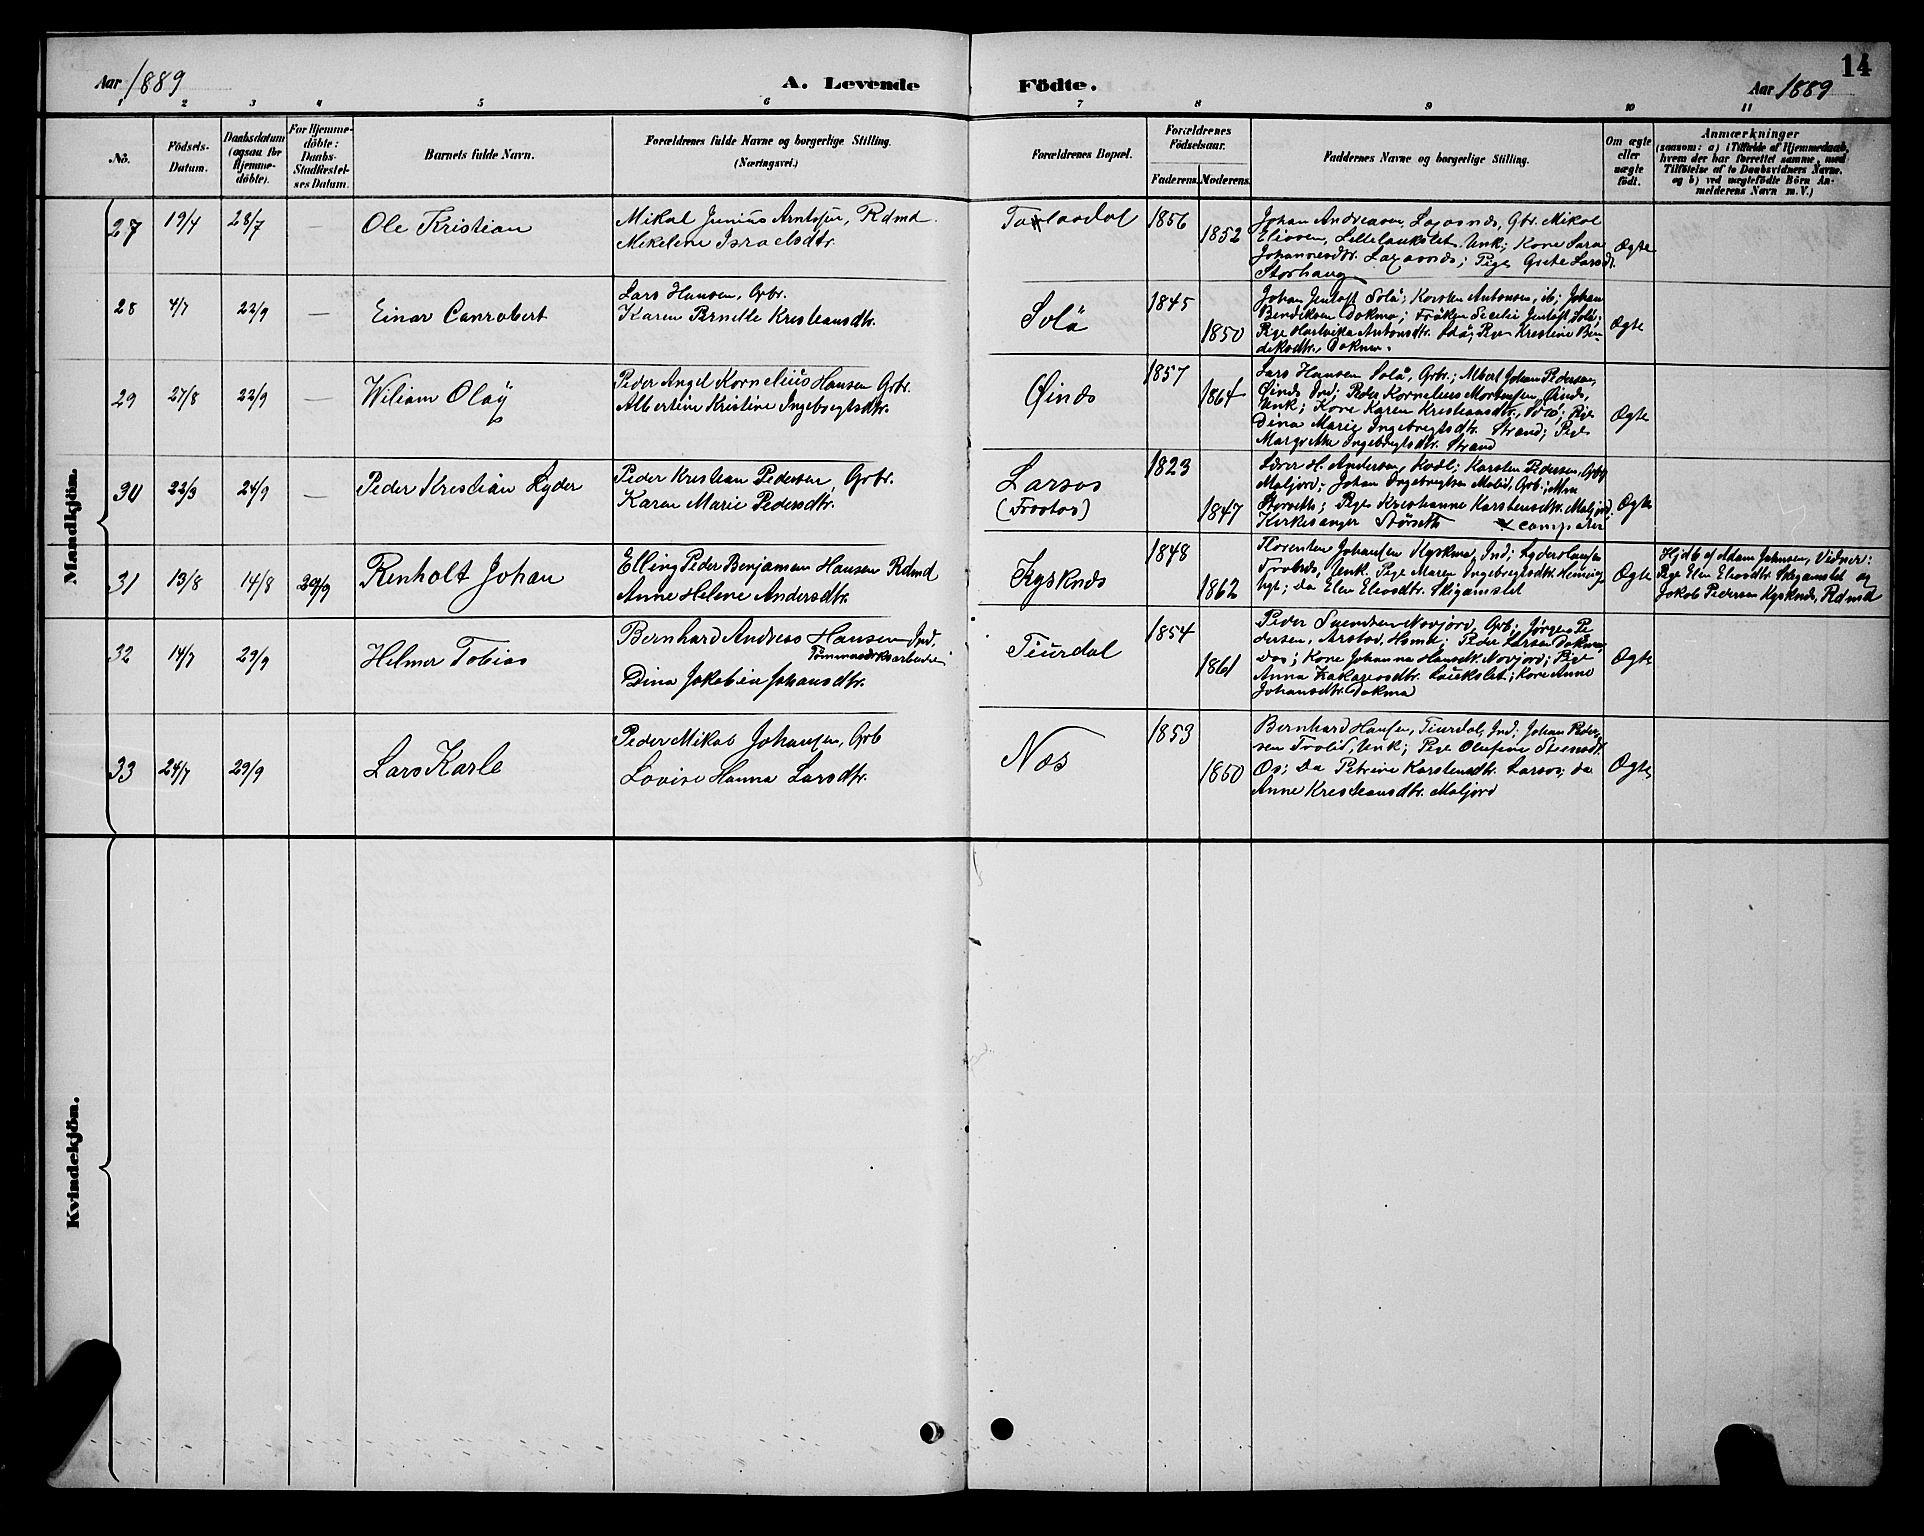 14
Aar 1889
A. Levende Födte.
Aar 1889
1 2 3 4 5 6 7 8 9 10 11
No.
Födsels-
Datum.
Daabsdatum
(ogsaa for
Hjemme-
döbte).
For Hjemme-
döbte:
Daabs-
Stadfæstel-
ses Datum.
Barnets fulde Navn.
Forældrenes fulde Navne og borgerlige Stilling.
(Næringsvei.)
Forældrenes Bopæl.
Forældrenes
Födselsaar.
Faderens. Moderens.
Faddernes Navne og borgerlige Stilling.
Om ægte
eller
uægte
födt.
Anmærkninger
(saasom: a) i Tilfælde af Hjemmedaab,
hvem der har forrettet samme, med
Tilföielse af to Daabsvidners Navne,
og b) ved uægtefödte Börn An-
melderens Navn m. V.)
Mandkjön.
27 19/4 28/7 — Ole Kristian
Mikal Junius Arntsen, Rdmd.
Mikeline Israelsdtr.
1856
1852
Johan Andreasen, Laxosnds, Gbr. Mikal
Eliasen, Lillelaukslet, Unk; Kone Sara
Johannesdtr. Laxosnds; Pige Grete Larsdt.
Storhaug
Ægte
28 4/7 22/9 — Einar Canrobert
Lars Hansen, Gbr.
Karen Pernelle Kristiansdtr.
Solö
1845
1850
Johan Jentoft Solö; Karsten Antonsen, ib; Johan
Bendiksen Dokmo; Fröken Secelie Jentoft Solö;
Pige Hartvika Antonsdtr. Solö; Pige Kristine Ben-
diksdtr. Dokmo.
Ægte
29 27/8 22/9 — Wiliam Olaf
Peder Angel Kornelius Hansen Gbr.
Albertine Kristine Ingebregtsdtr.
Øinds
1857
1864
Lars Hansen Solö, Gbr.; Albert Johan Pedersen,
Øinds Ind; Peder Kornelius Mortensen, Øinds,
Unk; Kone Karen Kristiansdtr., Solö; Pige
Dina Marie Ingebregtsdtr. Strand; Pige
Margrethe Ingebregtsdtr. Strand
Ægte
30 22/3 24/9 — Peder Kristian Ryder
Peder Kristian Pedersen, Gbr.
Karen Marie Pedersdtr.
Larsos
(Frostos)
1823
1847
Lærer H. Andersen, Karsten Pedersen, Gbr
Maljord; Johan Ingebregtsen Molid, Gbr.;
Störseth; Pige Kristianne Karstensdtr. Maljord
Kirkesanger Störseth
Ægte
31 13/8 14/8 29/9 Renholt Johan
Elling Peder Benjamin Hansen Rdmd
Anne Helene Andersdtr.
Kysknds
1848
1862
Florenten Johansen Kyskmo, Ind; Lyder Hansen
Unk. Pige Maren Ingebregtsdtr.
Do Elen Eliasdtr. Skigamslet
Ægte
Hjdb af Adam Johnsen, Vidner:
Pige Elen Eliasdtr Skigamslet og
Jakob Pedersen Kysknds, Rdmd
32 14/7 29/9 Helmer Tobias
Bernhard Andreas Hansen Ind,
Dina Jakobine Johansdtr.
Tiurdal
1854
1861
Peder Svendsen Novjord, Gbr; Jörgen Pe-
dersen, Arstod, Hsmd; Peder Larsen Dokmo,
Do; Kone Johanna Hansdtr. Novjord; Pige
Anna Zakariasdtr. Laukslet; Kone Anne
Johansdtr. Dokmo
Ægte
33 24/7 29/9 Lars Karle
Peder Mikal Johansen, Gbr
Lovise Hanna Larsdtr.
Næs
1853
1860
Bernhard Hansen, Tiurdal, Ind; Johan Peder-
sen Trolid, Unk; Pige Olufine Steensdt.
Os; Do Petrine Karstensdtr. Larsos; do
Anne Kristiansdtr. Maljord
Ægte
Kvindekjön.